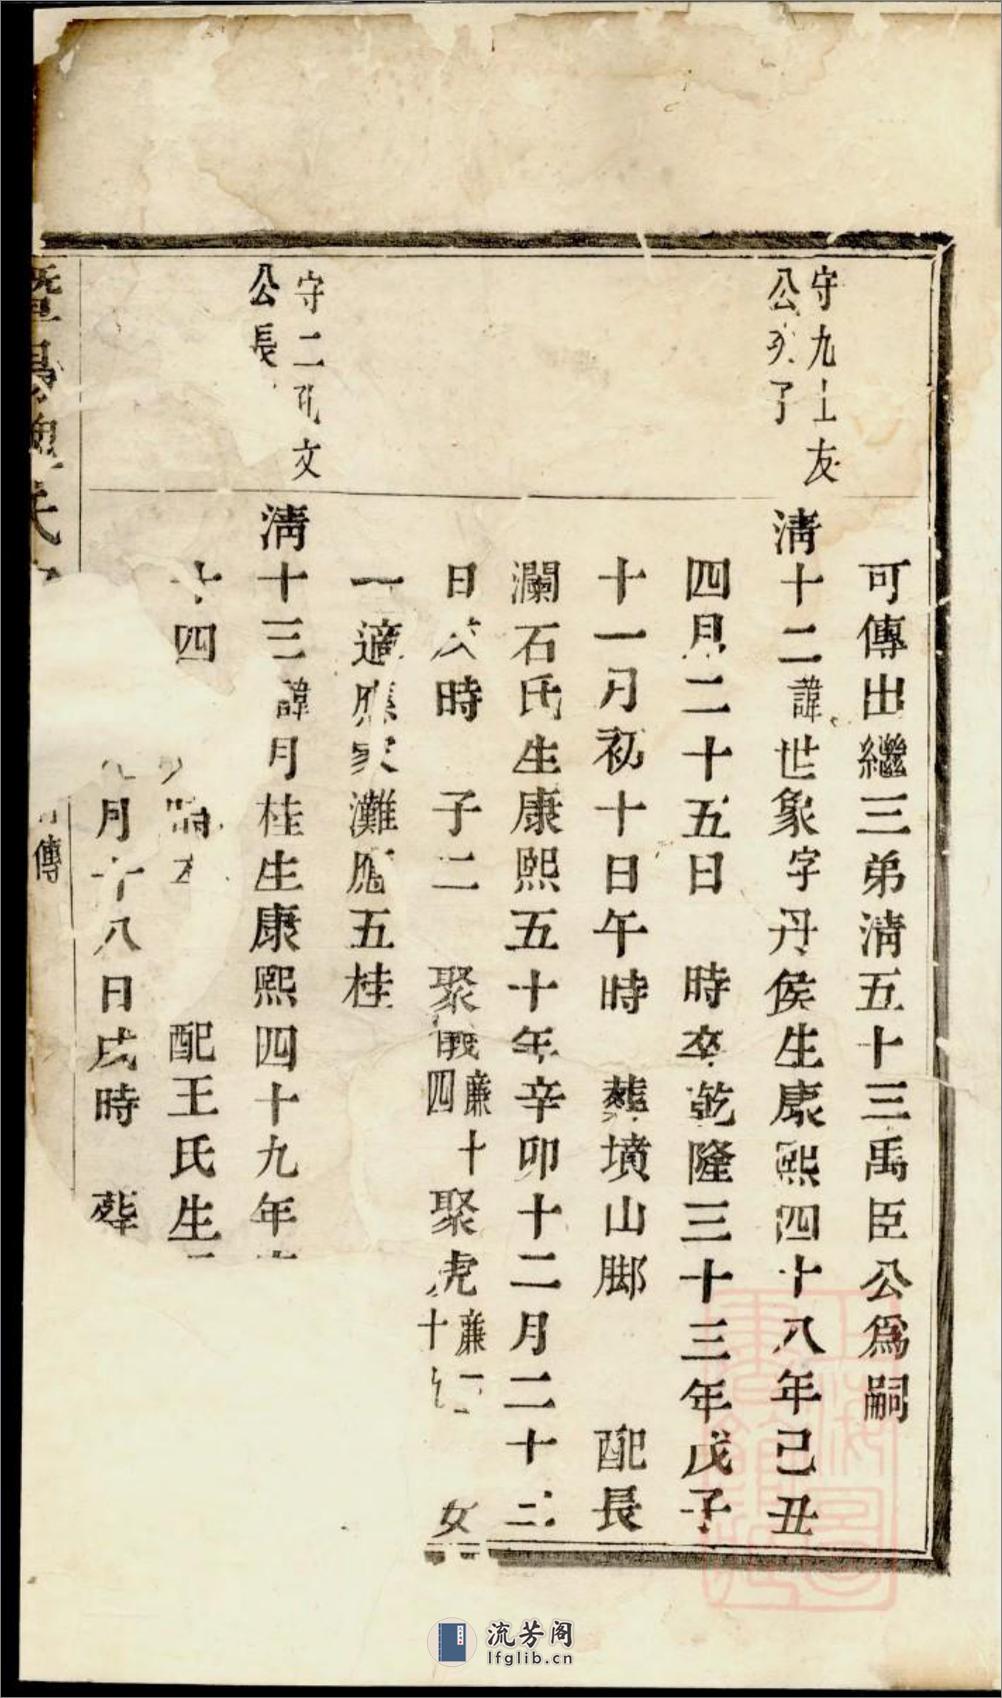 可傳出繼三弟清五十三禹臣公爲嗣
守九上友
公次子
清十二諱世象字丹侯生康熙四十八年己丑
四月二十五日 時卒乾隆三十三年戊子
十一月初十日午時 葬墳山脚 配長
瀾石氏生康熙五十年辛卯十二月二十三
日 時 子二 聚儀廉十四聚虎廉十 女
一適應家灘應五桂
守二 文
公長
清十三諱月桂生康熙四十九年
十四 配王氏生
月十八日戌時 葬
暨陽 氏
傳
流芳阁
lfglib.cn